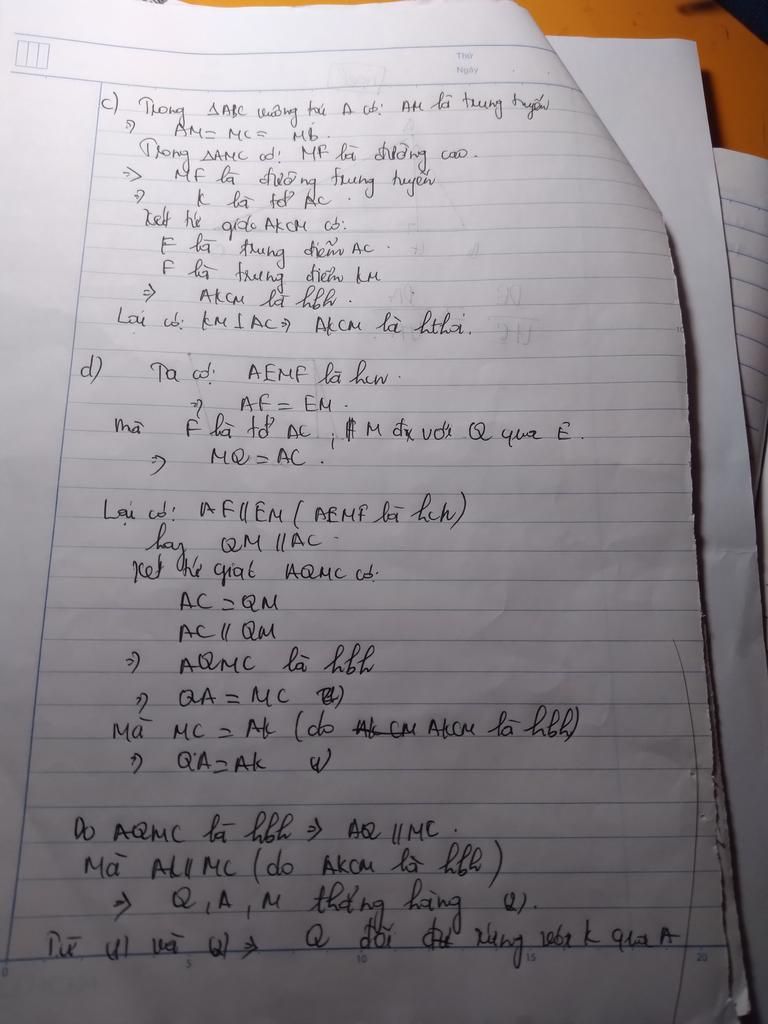 Thứ
Ngày
c) Trong ΔABC vuông tại A có: AM là trung tuyến
=> AM = MC = MB.
Trong ΔAMC có: MF là đường cao.
=> MF là đường trung tuyến
=> K là tđ AC.
Xét tứ giác AKCM có:
F là trung điểm AC.
F là trung điểm KM
=> AKCM là hbh.
Lại có: KM ⊥ AC => AKCM là hthoi.
d) Ta có: AEMF là hcn.
=> AF = EM.
mà F là tđ AC, M đx với Q qua E.
=> MQ = AC.
Lại có: AF // EM (AEMF là hcn)
hay QM // AC.
Xét tứ giác AQMC có:
AC = QM
AC // QM
=> AQMC là hbh
=> QA = MC
Mà MC = AK (do AKCM là hbh)
=> QA = AK (1)
Do AQMC là hbh => AQ // MC.
Mà AK // MC (do AKCM là hbh)
=> Q, A, M thẳng hàng (2).
Từ (1) và (2) => Q đối xứng với K qua A
0 5 10 15 20